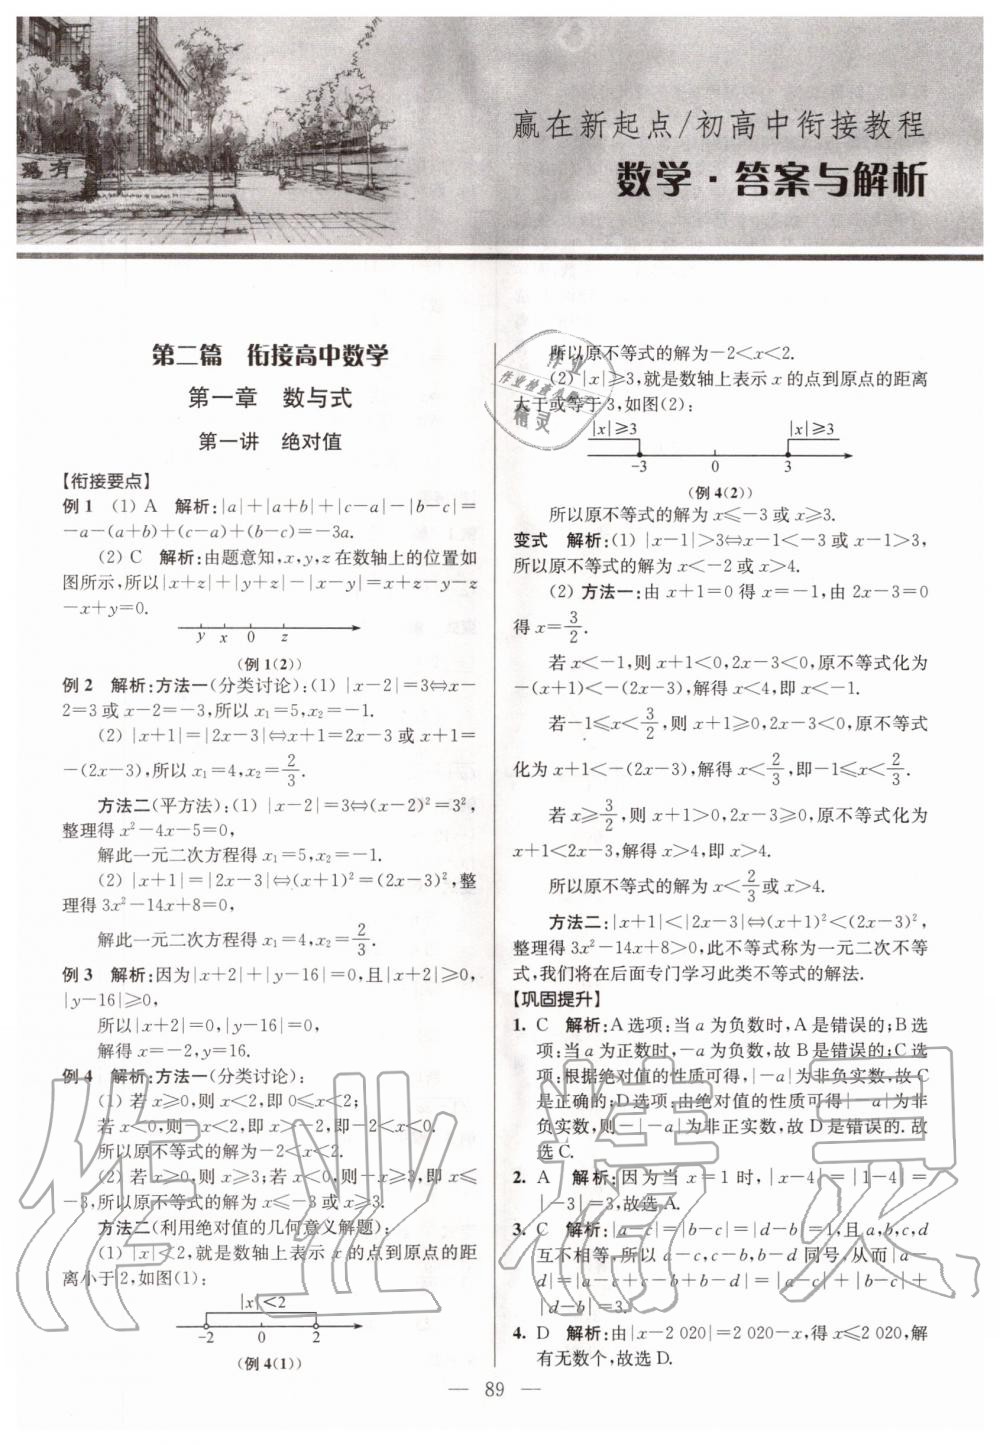 赢在新起点/初高中衔接教程
数学·答案与解析
第二篇 衔接高中数学
第一章 数与式
第一讲 绝对值
【衔接要点】
例1 (1) A 解析:|a|+|a+b|+|c-a|-|b-c|=
-a-(a+b)+(c-a)+(b-c)=-3a.
(2) C 解析:由题意知,x,y,z在数轴上的位置如
图所示,所以|x+z|+|y+z|-|x-y|=x+z-y-z
-x+y=0.
y x 0 z
(例1(2))
例2 解析:方法一(分类讨论):(1) |x-2|=3⇔x-
2=3或x-2=-3,所以x₁=5,x₂=-1.
(2) |x+1|=|2x-3|⇔x+1=2x-3或x+1=
-(2x-3),所以x₁=4,x₂=2/3.
方法二(平方法):(1) |x-2|=3⇔(x-2)²=3²,
整理得x²-4x-5=0,
解此一元二次方程得x₁=5,x₂=-1.
(2) |x+1|=|2x-3|⇔(x+1)²=(2x-3)²,整
理得3x²-14x+8=0,
解此一元二次方程得x₁=4,x₂=2/3.
例3 解析:因为|x+2|+|y-16|=0,且|x+2|≥0,
|y-16|≥0,
所以|x+2|=0,|y-16|=0,
解得x=-2,y=16.
例4 解析:方法一(分类讨论):
(1) 若x≥0,则x<2,即0≤x<2;
若x<0,则-x<2,即x>-2,即-2<x<0.
所以原不等式的解为-2<x<2.
(2) 若x≥0,则x≥3;若x<0,则-x≥3,即x≤
-3,所以原不等式的解为x≤-3或x≥3.
方法二(利用绝对值的几何意义解题):
(1) |x|<2,就是数轴上表示x的点到原点的距
离小于2,如图(1):
|x|<2
-2 0 2
(例4(1))
所以原不等式的解为-2<x<2.
(2) |x|≥3,就是数轴上表示x的点到原点的距离
大于或等于3,如图(2):
|x|≥3 |x|≥3
-3 0 3
(例4(2))
所以原不等式的解为x≤-3或x≥3.
变式 解析:(1) |x-1|>3⇔x-1<-3或x-1>3,
所以原不等式的解为x<-2或x>4.
(2) 方法一:由x+1=0得x=-1,由2x-3=0
得x=3/2.
若x<-1,则x+1<0,2x-3<0,原不等式化为
-(x+1)<-(2x-3),解得x<4,即x<-1.
若-1≤x<3/2,则x+1≥0,2x-3<0,原不等式
化为x+1<-(2x-3),解得x<2/3,即-1≤x<2/3.
若x≥3/2,则x+1>0,2x-3≥0,原不等式化为
x+1<2x-3,解得x>4,即x>4.
所以原不等式的解为x<2/3或x>4.
方法二:|x+1|<|2x-3|⇔(x+1)²<(2x-3)²,
整理得3x²-14x+8>0,此不等式称为一元二次不等
式,我们将在后面专门学习此类不等式的解法.
【巩固提升】
1. C 解析:A选项:当a为负数时,A是错误的;B选
项:当a为正数时,-a为负数,故B是错误的;C选
项:根据绝对值的性质可得,|-a|为非负实数,故C
是正确的;D选项:由绝对值的性质可得|-a|为非
负实数,则-|-a|为非正实数,故D是错误的.故
选C.
2. A 解析:因为当x=1时,|x-4|=|1-4|=
|-3|=3,故选A.
3. C 解析:|a-c|=|b-c|=|d-b|=1,且a,b,c,d
互不相等,所以a-c,c-b,b-d同号,从而|a-
d|=|a-c+c-b+b-d|=|a-c|+|b-c|+
|d-b|=3.
4. D 解析:由|x-2 020|=2 020-x,得x≤2 020,解
有无数个,故选D.
— 89 —
作业
作业检查
精灵
作业精灵